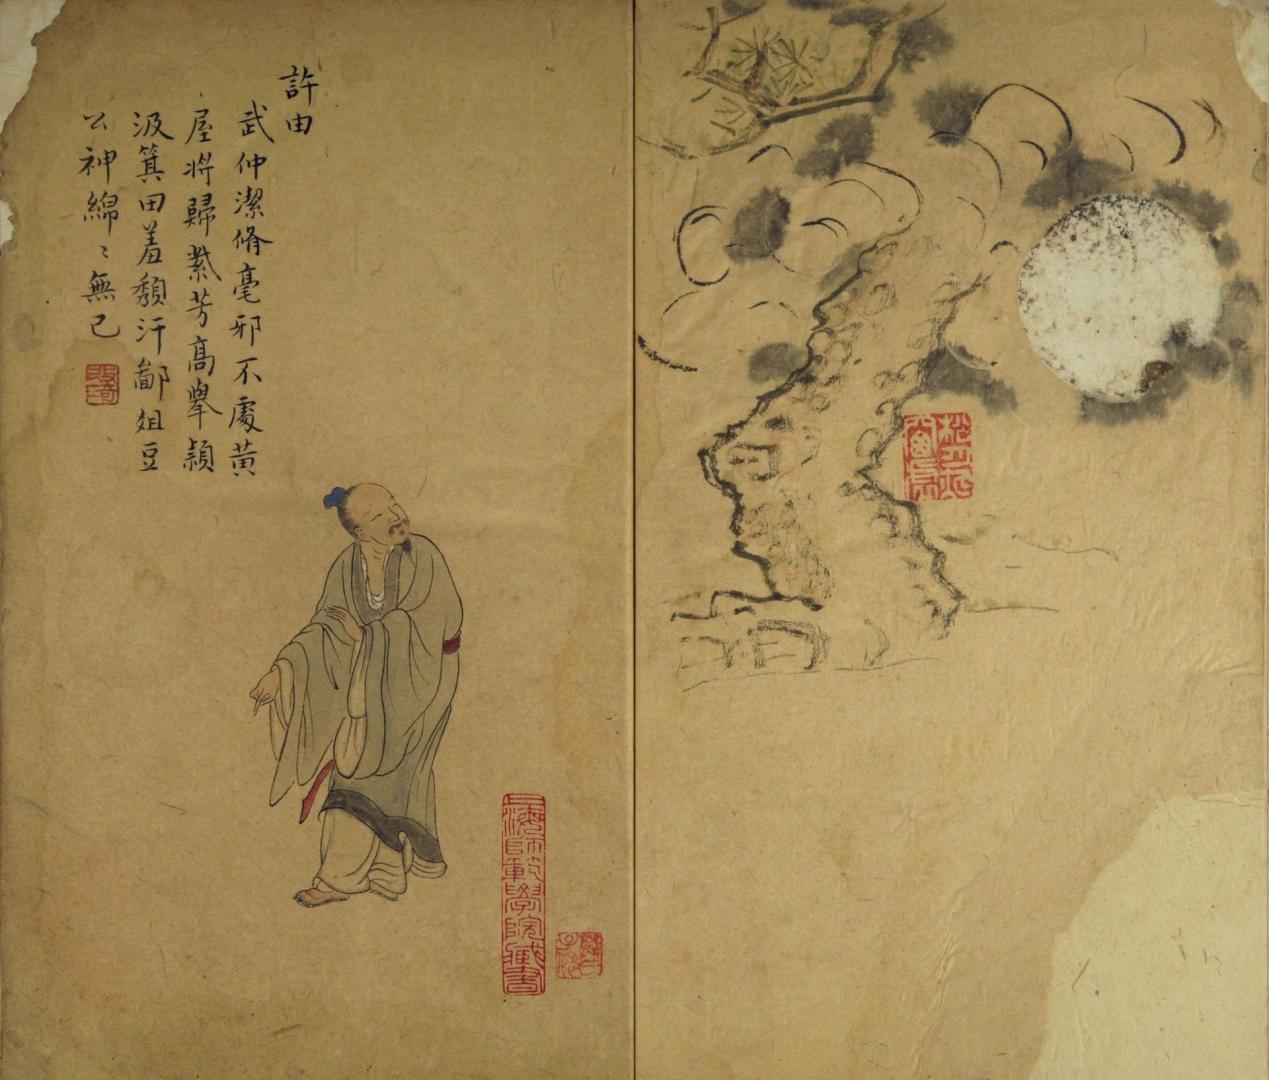 許由
武仲潔脩毫邪不處黃
屋將歸紫芳高擧潁
汲箕田羞顙汗鄙俎豆
公神綿〻無已
上海師範學院藏書